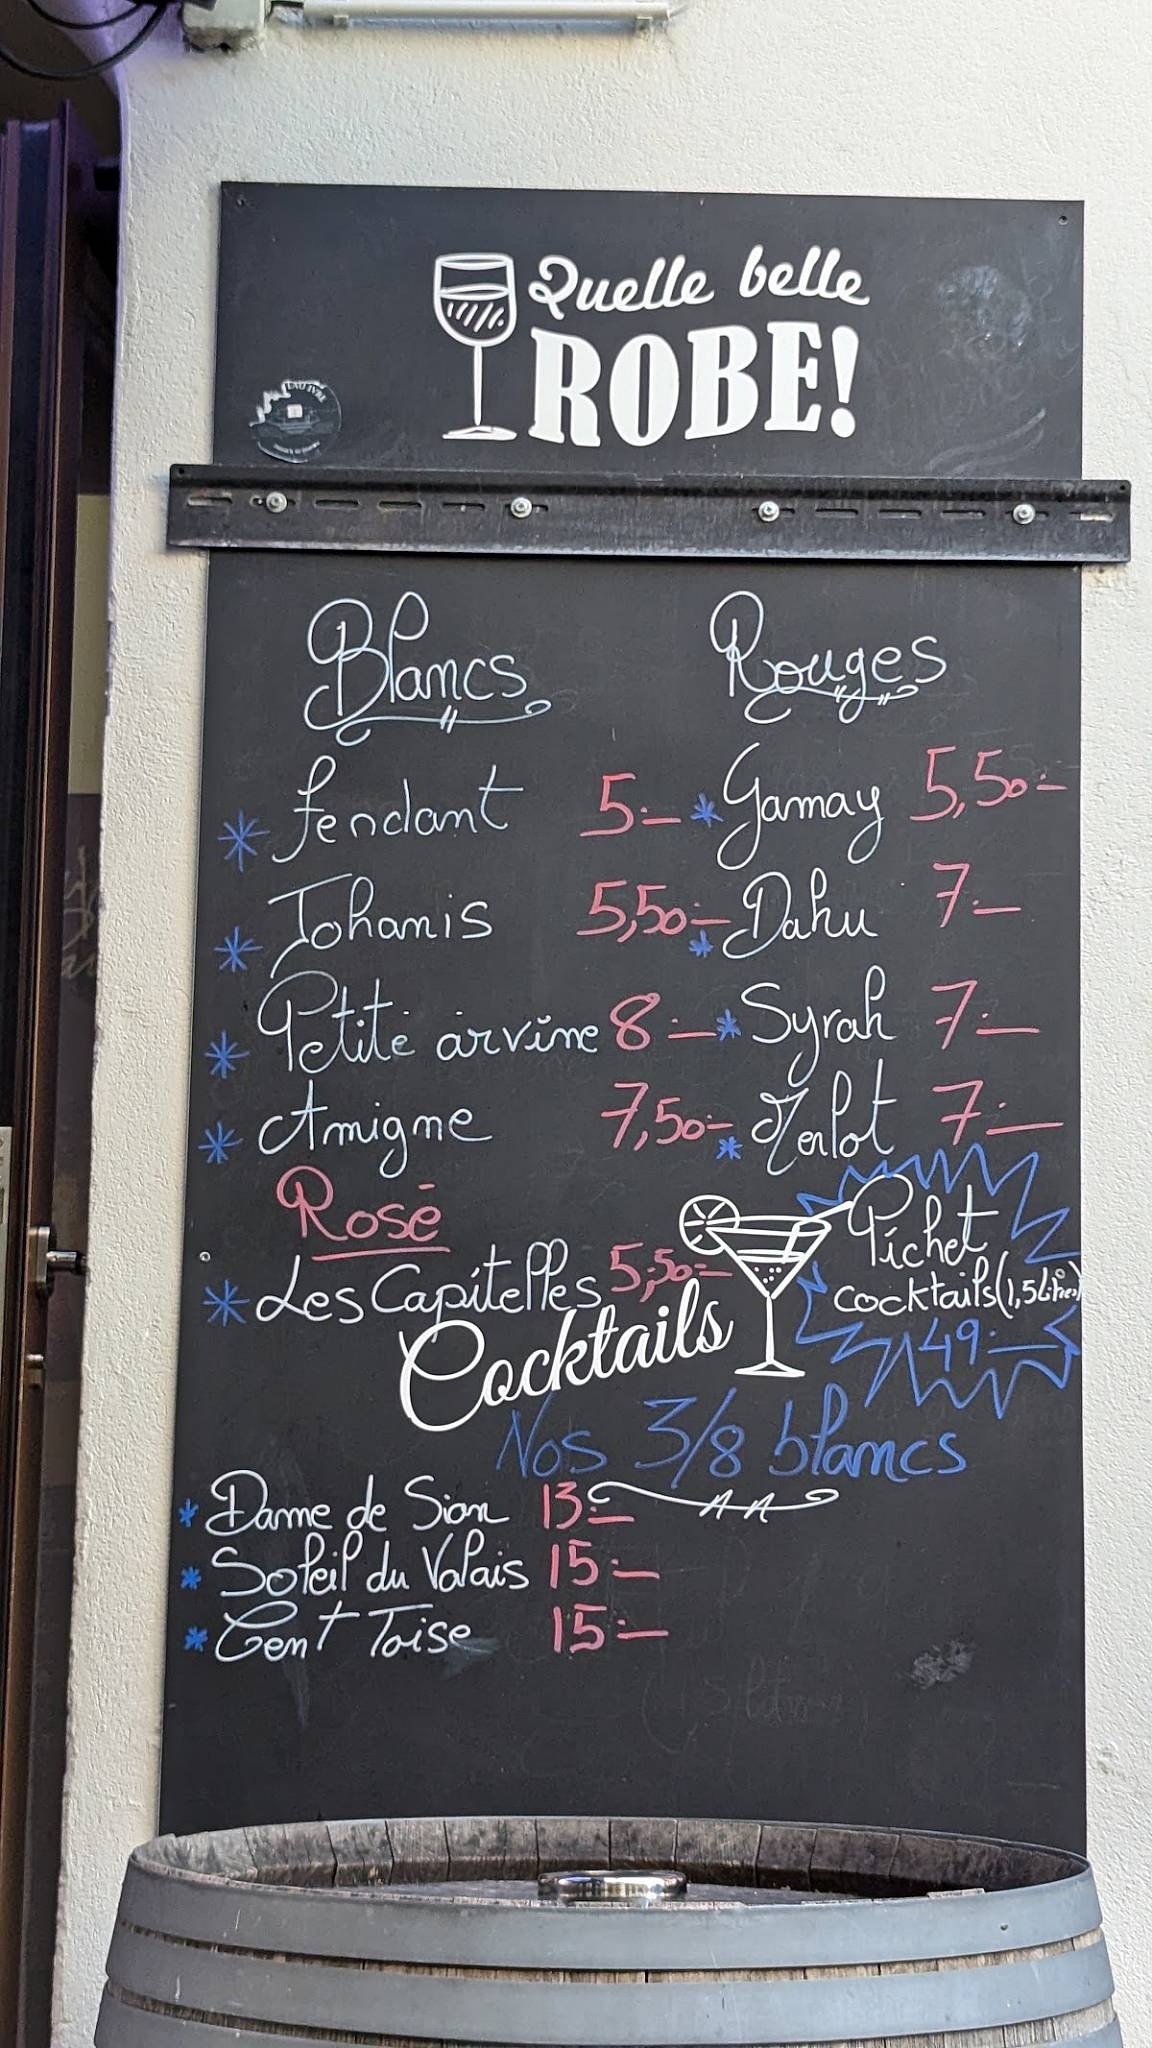 Quelle belle
ROBE!
Blancs
Fendant 5.-
Johanis 5,50.-
Petite arvine 8.-
Amigne 7,50.-
Rosé
Les Capitelles 5,50.-
Rouges
Gamay 5,50.-
Dahu 7.-
Syrah 7.-
Merlot 7.-
Cocktails
Pichet
cocktails (1,5 Litres)
49.-
Nos 3/8 blancs
Dame de Sion 13.-
Soleil du Valais 15.-
Cent Toise 15.-